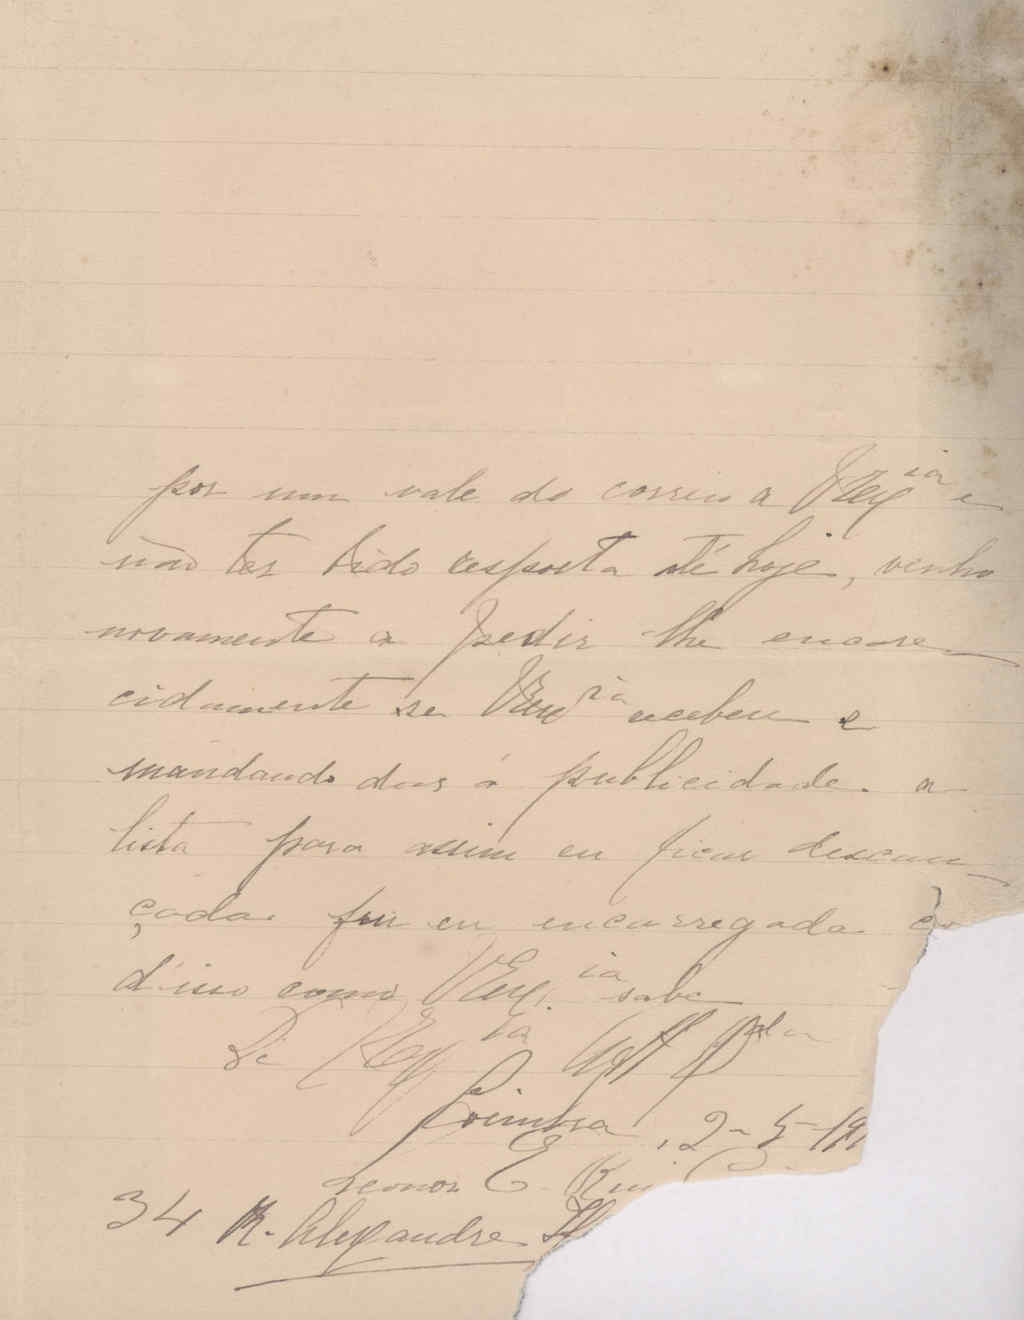 por um vale do correio a VExª e
não ter tido resposta até hoje, venho
novamente a pedir lhe encare
cidamente se VExcia recebeu e
mandando dar á publicidade. a
lista para assim eu ficar descan
çada. fui eu encarregada
d'isso como VExcia sabe
De VExcia Att
Coimbra, 2-5-19
Leonor E.
34 R. Alexandre H